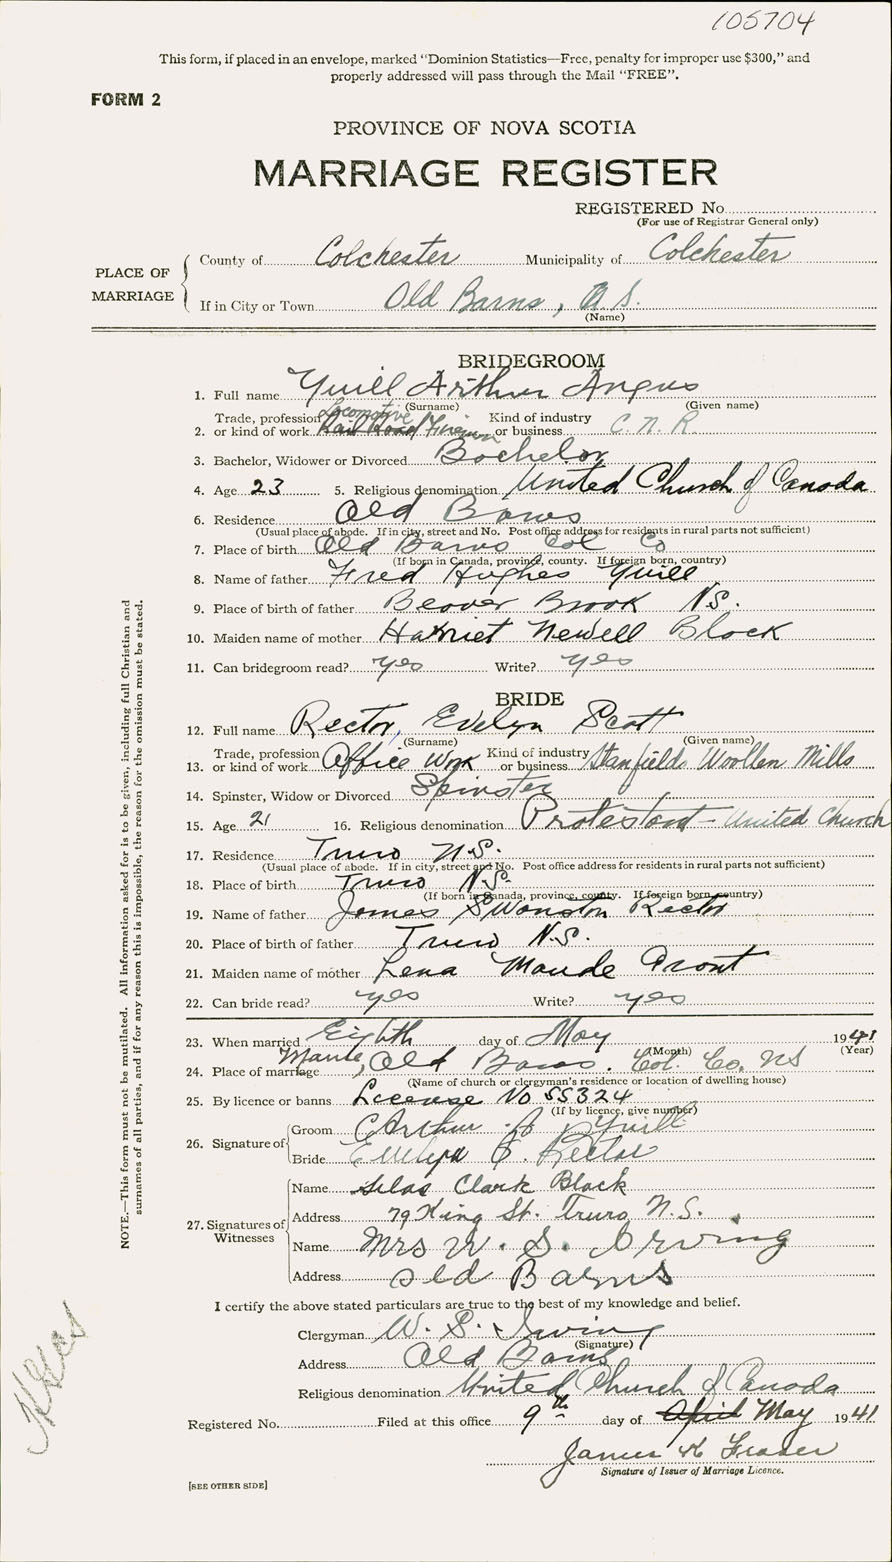 105704
This form, if placed in an envelope, marked "Dominion Statistics—Free, penalty for improper use $300," and
properly addressed will pass through the Mail "FREE".
FORM 2
PROVINCE OF NOVA SCOTIA
MARRIAGE REGISTER
REGISTERED No.
(For use of Registrar General only)
PLACE OF MARRIAGE
County of Colchester Municipality of Colchester
If in City or Town Old Barns, N.S.
(Name)
BRIDEGROOM
1. Full name Yuill Arthur Angus
(Surname) (Given name)
Locomotive
Trade, profession Kind of industry
2. or kind of work Rail Road Fireman or business C.N.R.
3. Bachelor, Widower or Divorced Bachelor
4. Age 23 5. Religious denomination United Church of Canada
6. Residence Old Barns
(Usual place of abode. If in city, street and No. Post office address for residents in rural parts not sufficient)
7. Place of birth Old Barns Col Co
(If born in Canada, province, county. If foreign born, country)
8. Name of father Fred Hughes Yuill
9. Place of birth of father Beaver Brook N.S.
10. Maiden name of mother Harriet Newell Black
11. Can bridegroom read? yes Write? yes
BRIDE
12. Full name Rector, Evelyn Scott
(Surname) (Given name)
Trade, profession Kind of industry
13. or kind of work Office Work or business Stanfields Woollen Mills
14. Spinster, Widow or Divorced Spinster
15. Age 21 16. Religious denomination Protestant - United Church
17. Residence Truro N.S.
(Usual place of abode. If in city, street and No. Post office address for residents in rural parts not sufficient)
18. Place of birth Truro N.S.
(If born in Canada, province, county. If foreign born, country)
19. Name of father James Swanston Rector
20. Place of birth of father Truro N.S.
21. Maiden name of mother Lena Maude
22. Can bride read? yes Write? yes
23. When married Eighth day of May 1941
(Month) (Year)
24. Place of marriage Manse, Old Barns. Col. Co. NS
(Name of church or clergyman's residence or location of dwelling house)
25. By licence or banns License No 55324
(If by licence, give number)
26. Signature of
Groom Arthur A Yuill
Bride Evelyn S. Rector
27. Signatures of Witnesses
Name Silas Clark Black
Address 79 King St. Truro N.S.
Name Mrs W. S. Irving
Address Old Barns
I certify the above stated particulars are true to the best of my knowledge and belief.
Clergyman W. S. Irving
(Signature)
Address Old Barns
Religious denomination United Church of Canada
Registered No. Filed at this office 9th day of April May 1941
James K Fraser
Signature of Issuer of Marriage Licence.
[SEE OTHER SIDE]
NOTE.—This form must not be mutilated. All information asked for is to be given, including full Christian and
surnames of all parties, and if for any reason this is impossible, the reason for the omission must be stated.